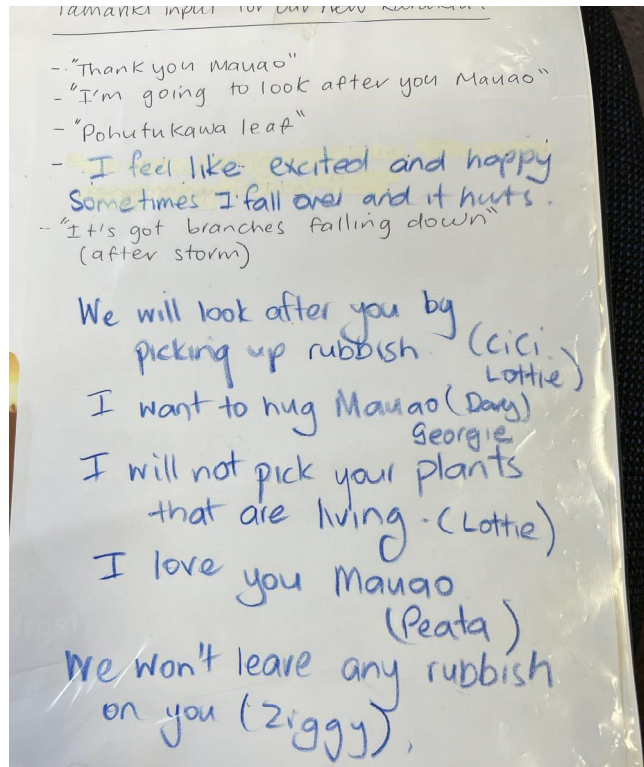 Tamariki input for our new
- "Thank you Mauao"
- "I'm going to look after you Mauao"
- "Pohutukawa leaf"
- I feel like excited and happy
Sometimes I fall over and it hurts.
- "It's got branches falling down"
(after storm)
We will look after you by
picking up rubbish (CiCi.
Lottie)
I want to hug Mauao (Davy)
Georgie
I will not pick your plants
that are living. (Lottie)
I love you Mauao
(Peata)
We won't leave any rubbish
on you (Ziggy).